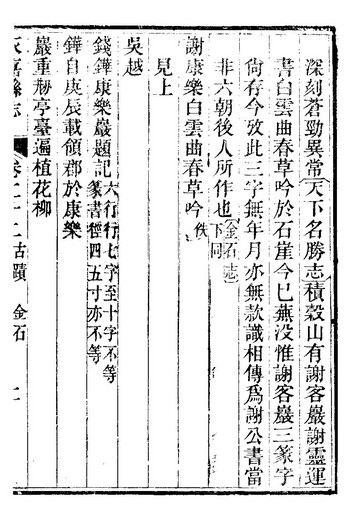 深刻蒼勁異常天下名勝志積穀山有謝客巖謝靈運
書白雲曲春草吟於石崖今已蕪没惟謝客巖三篆字
尚存今攷此三字無年月亦無款識相傳爲謝公書當
非六朝後人所作也金石志下同
謝康樂白雲曲春草吟佚
見上
吳越
錢鏵康樂巖題記六行行七字至十字不等篆書徑四五寸亦不等
鏵自庚辰載領郡於康樂
巖重剏亭臺遍植花柳
永嘉縣志
卷二十二古蹟
金石
二